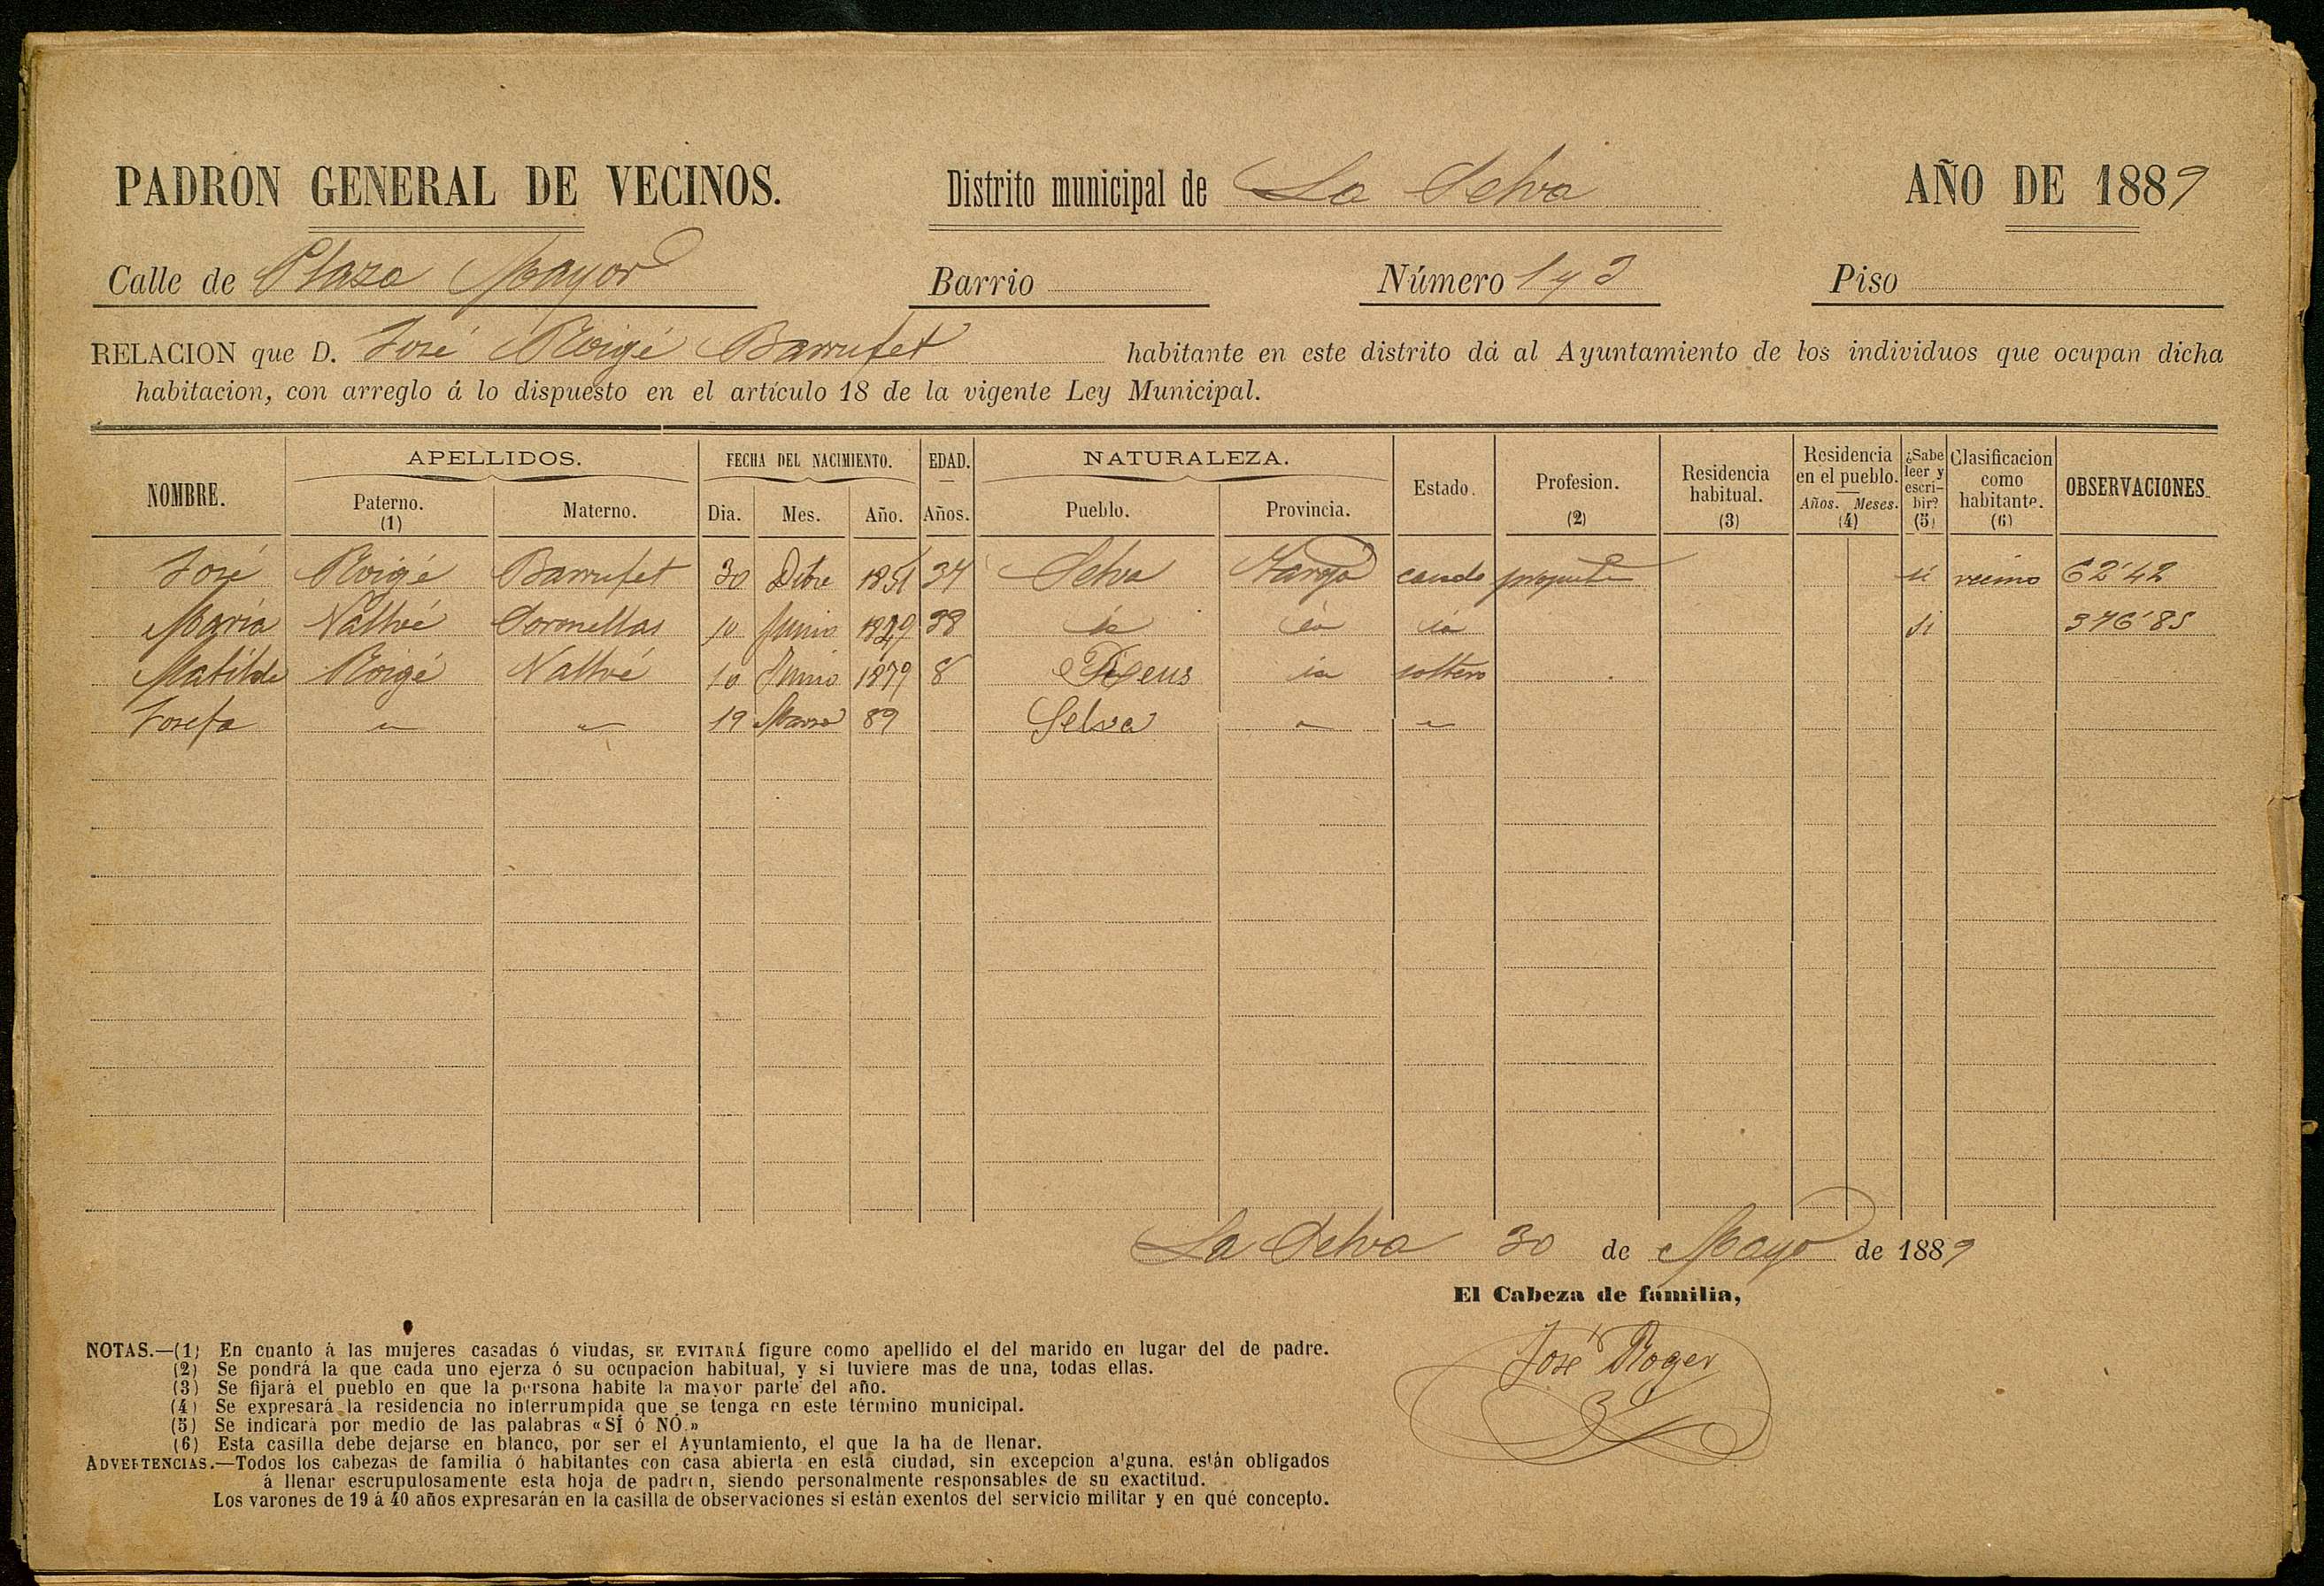 PADRON GENERAL DE VECINOS. Distrito municipal de La Selva AÑO DE 1889
Calle de Plaza Mayor Barrio Número 1 y 3 Piso
RELACION que D. José Roigé Barrufet habitante en este distrito dá al Ayuntamiento de los individuos que ocupan dicha
habitacion, con arreglo á lo dispuesto en el artículo 18 de la vigente Ley Municipal.
NOMBRE. APELLIDOS. FECHA DEL NACIMIENTO. EDAD. NATURALEZA. Estado. Profesion. (2) Residencia habitual. (3) Residencia en el pueblo. Años. Meses. (4) ¿Sabe leer y escribir? (5) Clasificación como habitante. (6) OBSERVACIONES.
Paterno. (1) Materno. Dia. Mes. Año. Años. Pueblo. Provincia.
José Roigé Barrufet 30 Dbre 1851 37 Selva Tarrga casado propiet. si vecino 62'42
Maria Nallvé 10 Junio 38 id id id si 376'85
Matilde Roigé Nallvé 10 Junio 1879 8 Reus id soltera
Josefa " " 19 Marzo 89 Selva " "
La Selva 30 de Mayo de 1889
El Cabeza de familia,
José Roger
NOTAS.—(1) En cuanto á las mujeres casadas ó viudas, SE EVITARÁ figure como apellido el del marido en lugar del de padre.
(2) Se pondrá la que cada uno ejerza ó su ocupacion habitual, y si tuviere mas de una, todas ellas.
(3) Se fijará el pueblo en que la persona habite la mayor parte del año.
(4) Se expresará la residencia no interrumpida que se tenga en este término municipal.
(5) Se indicará por medio de las palabras «SÍ ó NÓ.»
(6) Esta casilla debe dejarse en blanco, por ser el Ayuntamiento, el que la ha de llenar.
ADVERTENCIAS.—Todos los cabezas de familia ó habitantes con casa abierta en esta ciudad, sin excepcion alguna, están obligados
á llenar escrupulosamente esta hoja de padron, siendo personalmente responsables de su exactitud.
Los varones de 19 á 40 años expresarán en la casilla de observaciones si están exentos del servicio militar y en qué concepto.